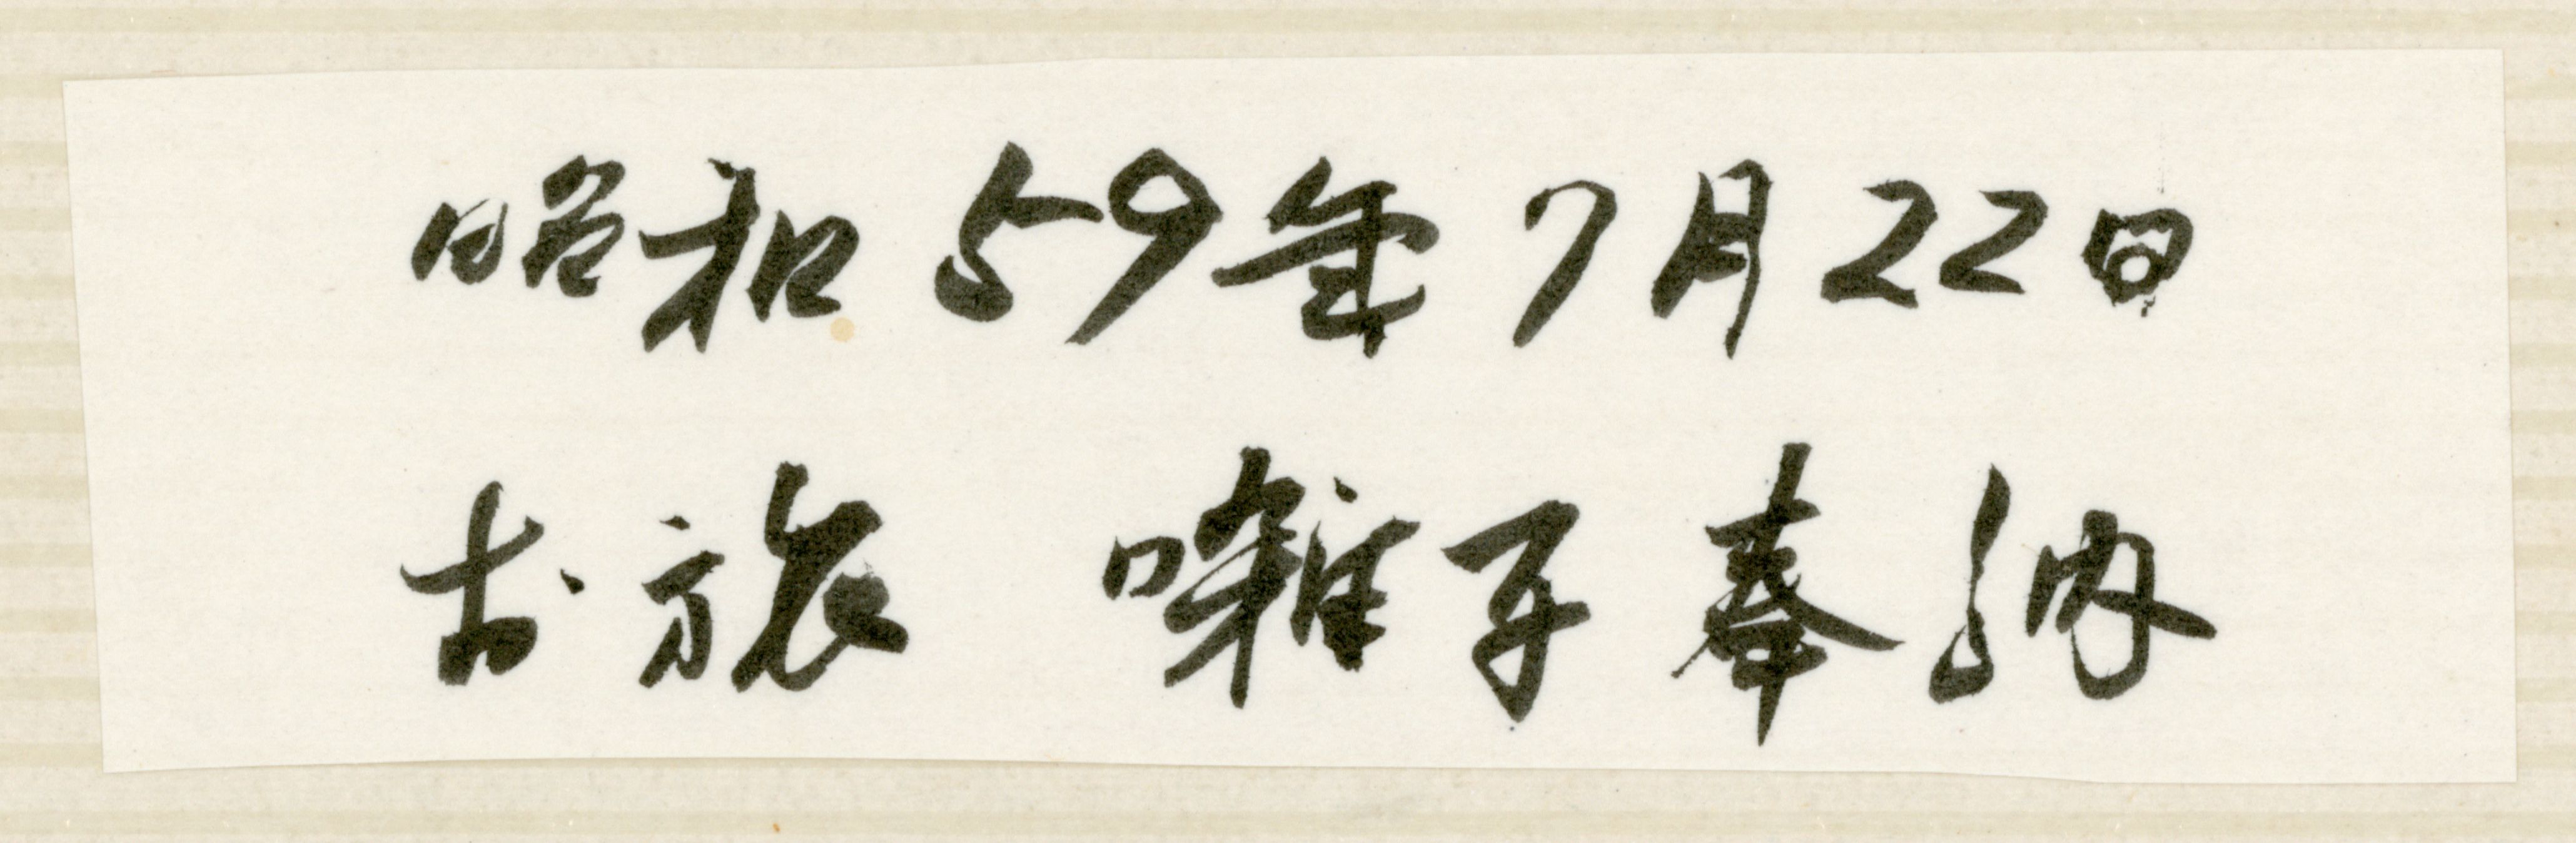 昭和59年7月22日
お旅 囃子奉納